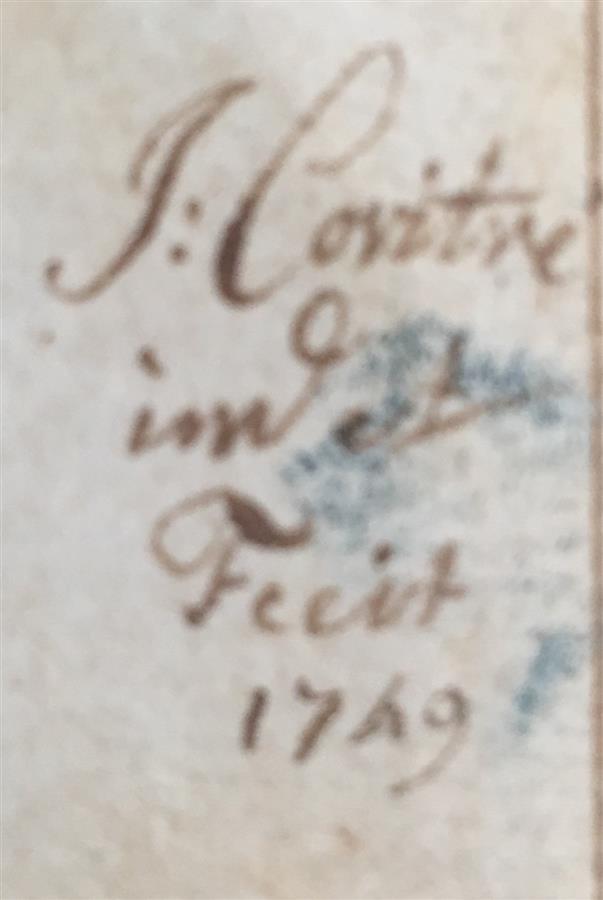 J: Covitre
inv et
Fecit
1749